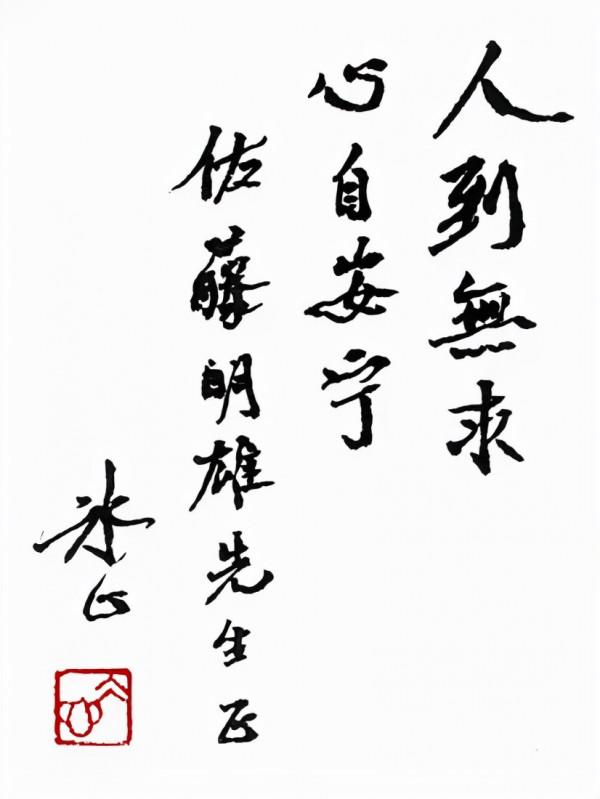 人到無求
心自安宁
佐藤明雄先生正
冰心
冰心